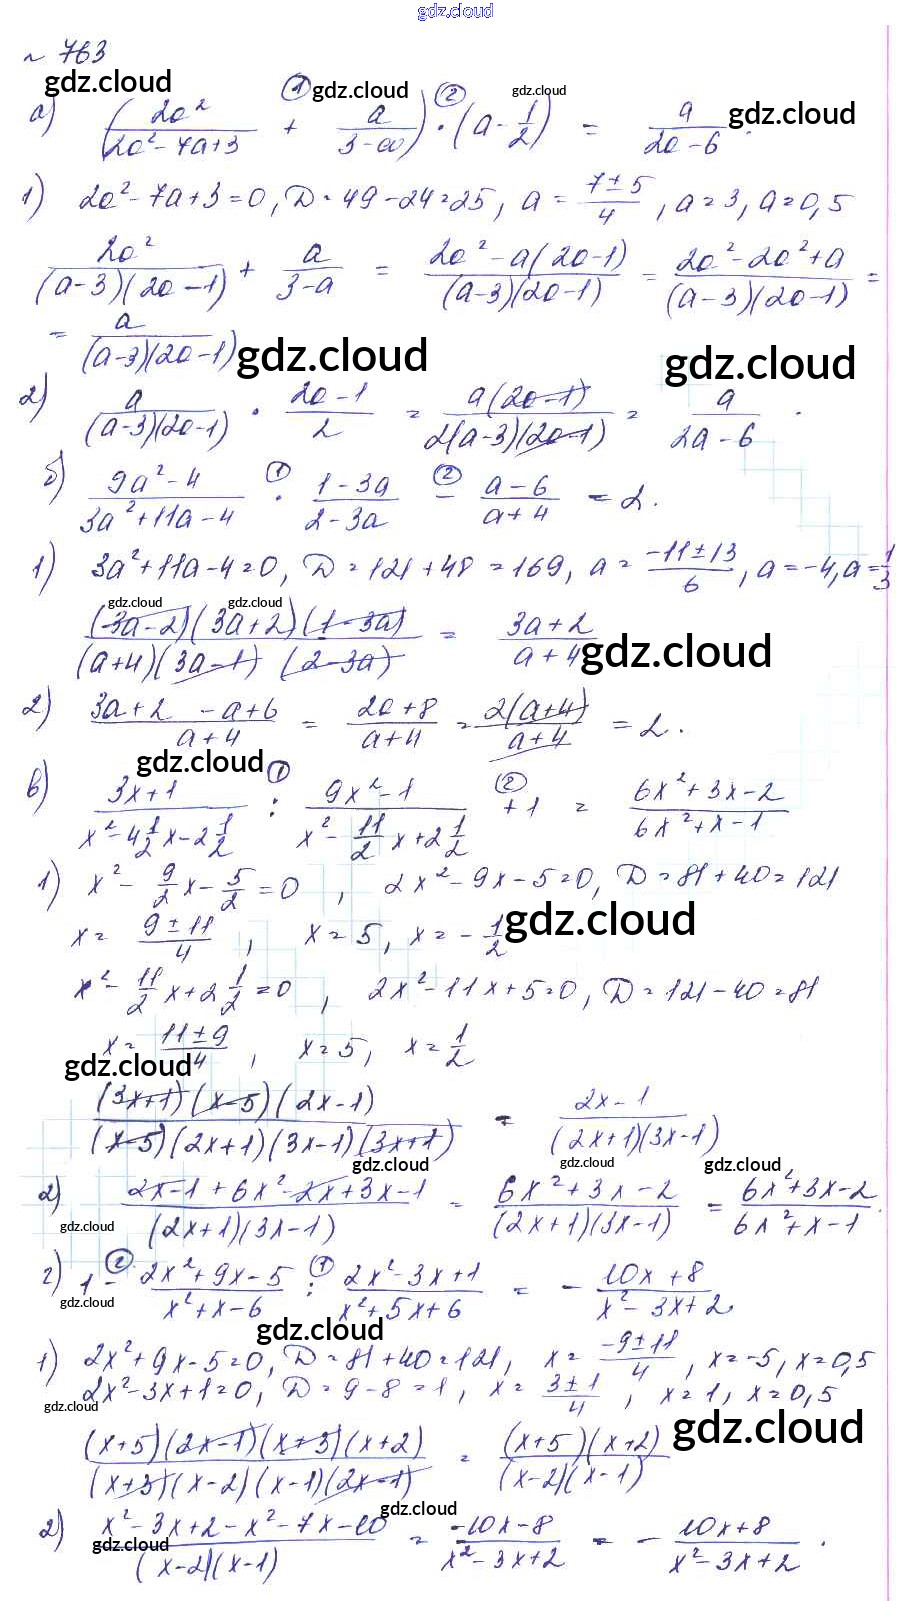 gdz.cloud
№ 763
gdz.cloud gdz.cloud gdz.cloud gdz.cloud
а) (2a²/(2a²-7a+3) + a/(3-a)) · (a - 1/2) = a/(2a-6).
① ②
1) 2a²-7a+3=0, D=49-24=25, a = (7±5)/4, a=3, a=0,5
2a²/((a-3)(2a-1)) + a/(3-a) = (2a²-a(2a-1))/((a-3)(2a-1)) = (2a²-2a²+a)/((a-3)(2a-1)) =
= a/((a-3)(2a-1))
gdz.cloud gdz.cloud
2) a/((a-3)(2a-1)) · (2a-1)/2 = a(2a-1)/(2(a-3)(2a-1)) = a/(2a-6).
б) (9a²-4)/(3a²+11a-4) ① : (1-3a)/(2-3a) ② - (a-6)/(a+4) = 2.
1) 3a²+11a-4=0, D=121+48=169, a = (-11±13)/6, a=-4, a=1/3
gdz.cloud gdz.cloud
(3a-2)(3a+2)(1-3a)/((a+4)(3a-1)(2-3a)) = (3a+2)/(a+4)
gdz.cloud
2) (3a+2-a+6)/(a+4) = (2a+8)/(a+4) = 2(a+4)/(a+4) = 2.
gdz.cloud
в) (3x+1)/(x²-4 1/2 x-2 1/2) ① : (9x²-1)/(x²-11/2 x+2 1/2) ② +1 = (6x²+3x-2)/(6x²+x-1)
1) x² - 9/2 x - 5/2 = 0, 2x²-9x-5=0, D=81+40=121
x = (9±11)/4, x=5, x=-1/2
gdz.cloud
x² - 11/2 x + 2 1/2 = 0, 2x²-11x+5=0, D=121-40=81
x = (11±9)/4, x=5, x=1/2
gdz.cloud
(3x+1)(x-5)(2x-1)/((x-5)(2x+1)(3x-1)(3x+1)) = (2x-1)/((2x+1)(3x-1))
gdz.cloud gdz.cloud gdz.cloud
2) (2x-1+6x²-2x+3x-1)/((2x+1)(3x-1)) = (6x²+3x-2)/((2x+1)(3x-1)) = (6x²+3x-2)/(6x²+x-1).
gdz.cloud
г) 1 ② - (2x²+9x-5)/(x²+x-6) ① : (2x²-3x+1)/(x²+5x+6) = - (10x+8)/(x²-3x+2)
gdz.cloud gdz.cloud
1) 2x²+9x-5=0, D=81+40=121, x = (-9±11)/4, x=-5, x=0,5
2x²-3x+1=0, D=9-8=1, x = (3±1)/4, x=1, x=0,5
gdz.cloud gdz.cloud
(x+5)(2x-1)(x+3)(x+2)/((x+3)(x-2)(x-1)(2x-1)) = (x+5)(x+2)/((x-2)(x-1))
gdz.cloud
2) (x²-3x+2-x²-7x-10)/((x-2)(x-1)) = (-10x-8)/(x²-3x+2) = - (10x+8)/(x²-3x+2).
gdz.cloud